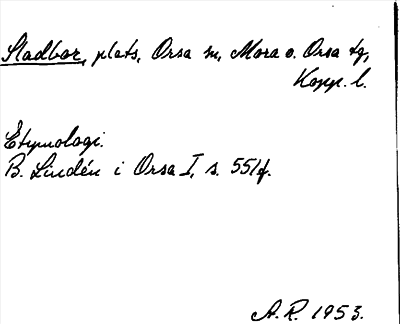 Sladbor, plats, Orsa sn, Mora o. Orsa tg,
Kopp. l.
Etymologi.
B. Lindén i Orsa I, s. 551f.
A.R. 1953.